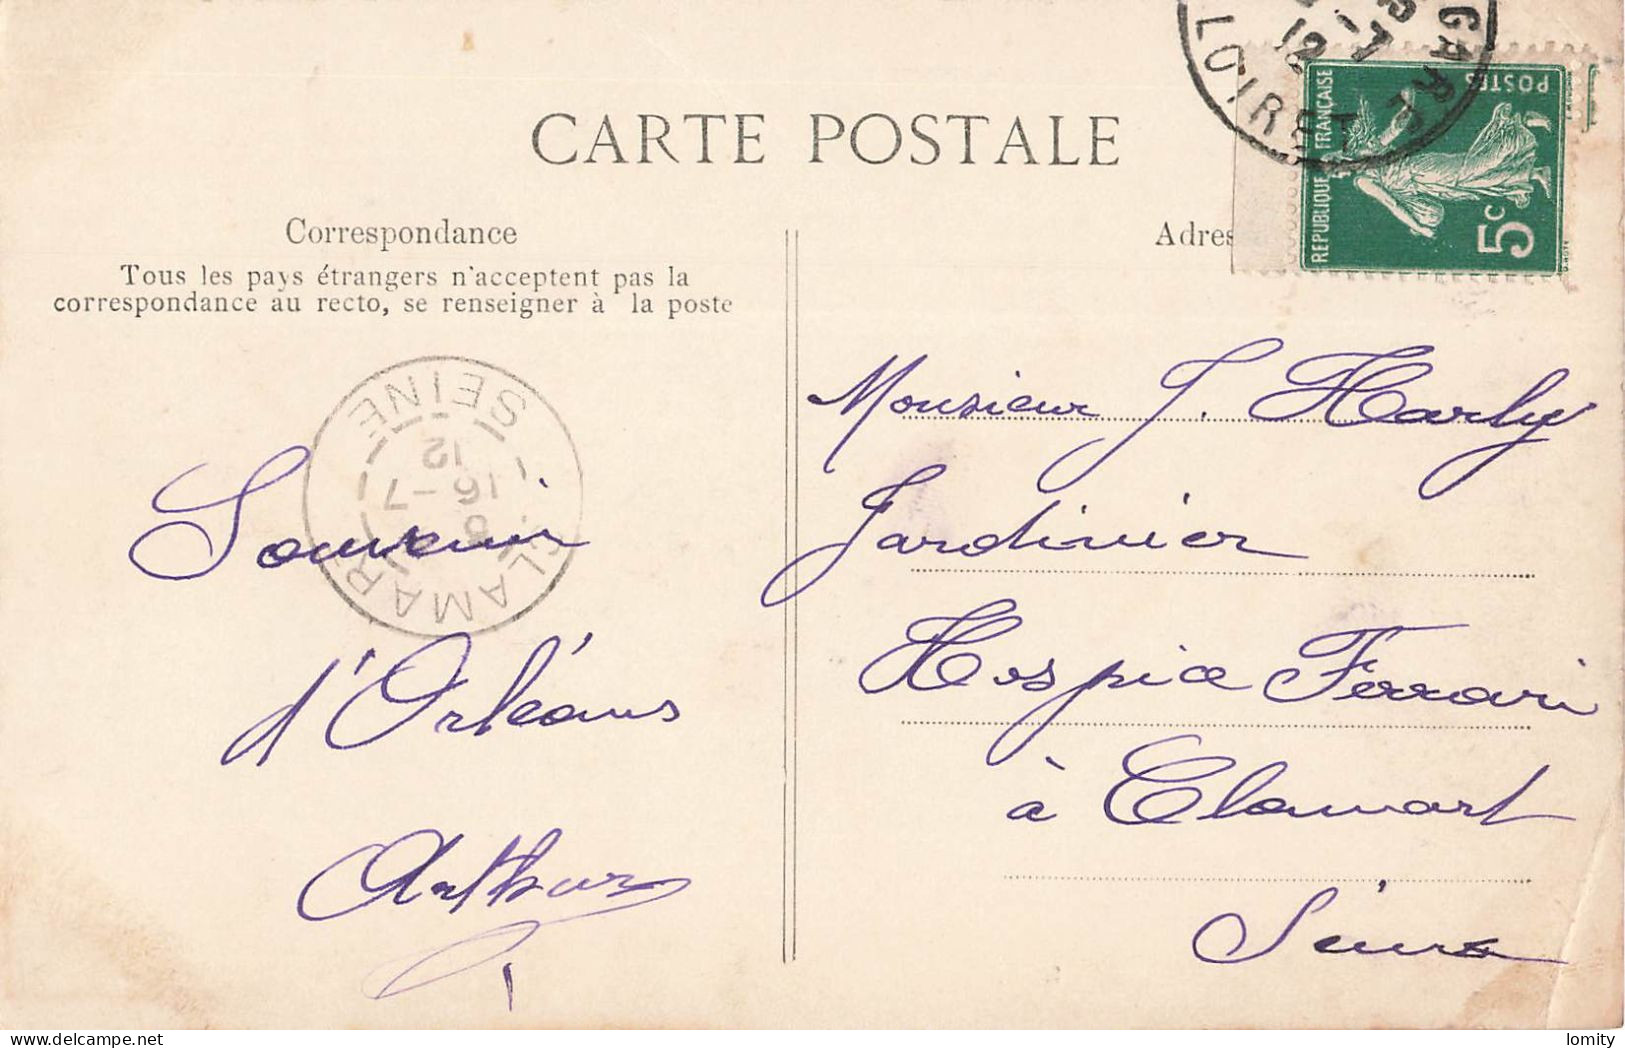 CARTE POSTALE
Correspondance
Tous les pays étrangers n'acceptent pas la
correspondance au recto, se renseigner à la poste
Souvenir
d'Orléans
Arthur
CLAMART
SEINE
16-7
12
Adres
GARE
LOIRET
12
RÉPUBLIQUE FRANÇAISE
POSTES
5c
Monsieur J. Harly
Jardinier
Hospice Ferrari
à Clamart
Seine
lomity